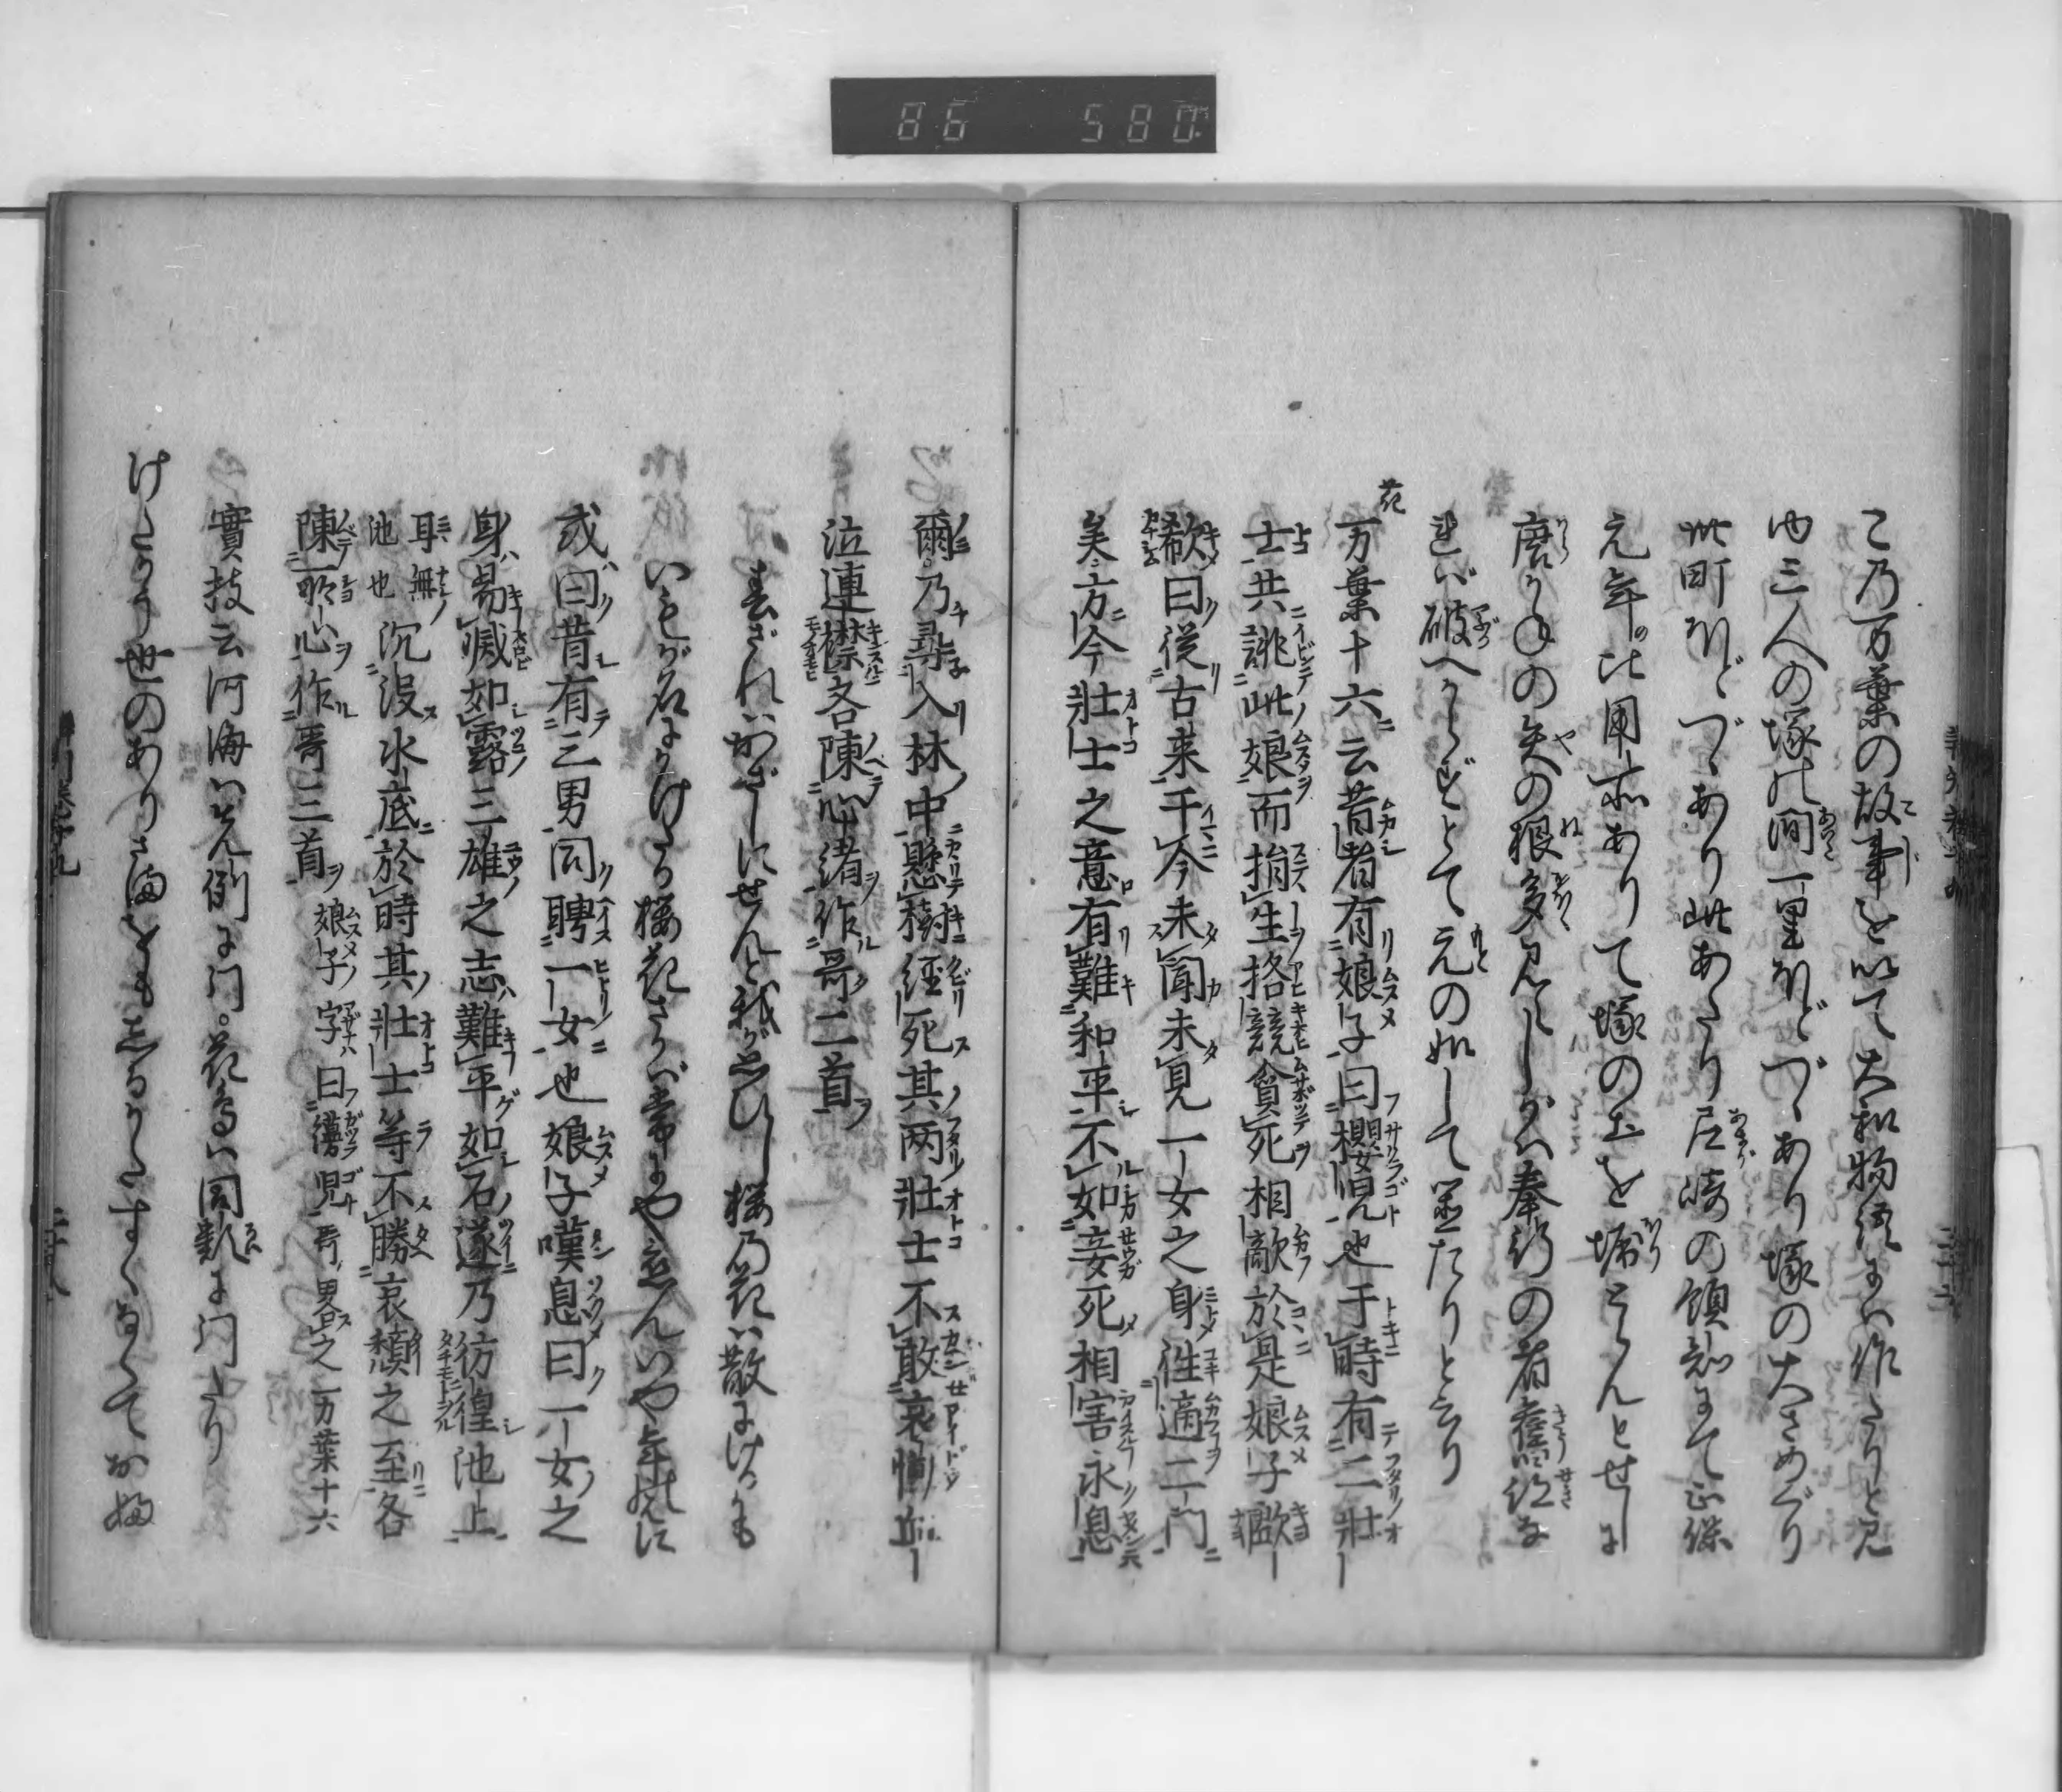 86 580
この万葉の故事を以て大和物語には作たりと見
ゆ三人の塚の間一里ほどづゝあり塚の大さめぐり
卅町ほどづゝあり此あたり尼崎の領知にて正保
元年の比用所ありて塚の土を堀とらんとせしに
磨かねの矢の根多見えしかは奉行の者舊跡な
れば破へからずとて元の如して置たりと云り
花
万葉十六云昔者有娘子曰櫻児也于時有二壮
士共誂此娘而捐生挌競貪死相敵於是娘子歔
欷曰従古来于今未聞未見一女之身徃適二門
矣方今壮士之意有難和平不如妾死相害永息
爾乃尋入林中懸樹経死其両壮士不敢哀慟血
泣連襟各陳心緒作哥二首
春さればかざしにせんと我が思ひし桜の花は散にけるかも
いもが名にかけたる桜花さかば常にや恋んいや年のはに
或曰昔有三男同聘一女也娘子嘆息曰一女之
身易滅如露三雄之志難平如石遂乃彷徨池上
耳無池也
沉没水底於時其壮士等不勝哀頽之至各
陳所心作哥三首
娘子字曰蘰児哥畧之万葉十六
實技云河海は先例に門。花鳥は同類に門たり
けとうう世のありさまをもしるかたすくなくてお